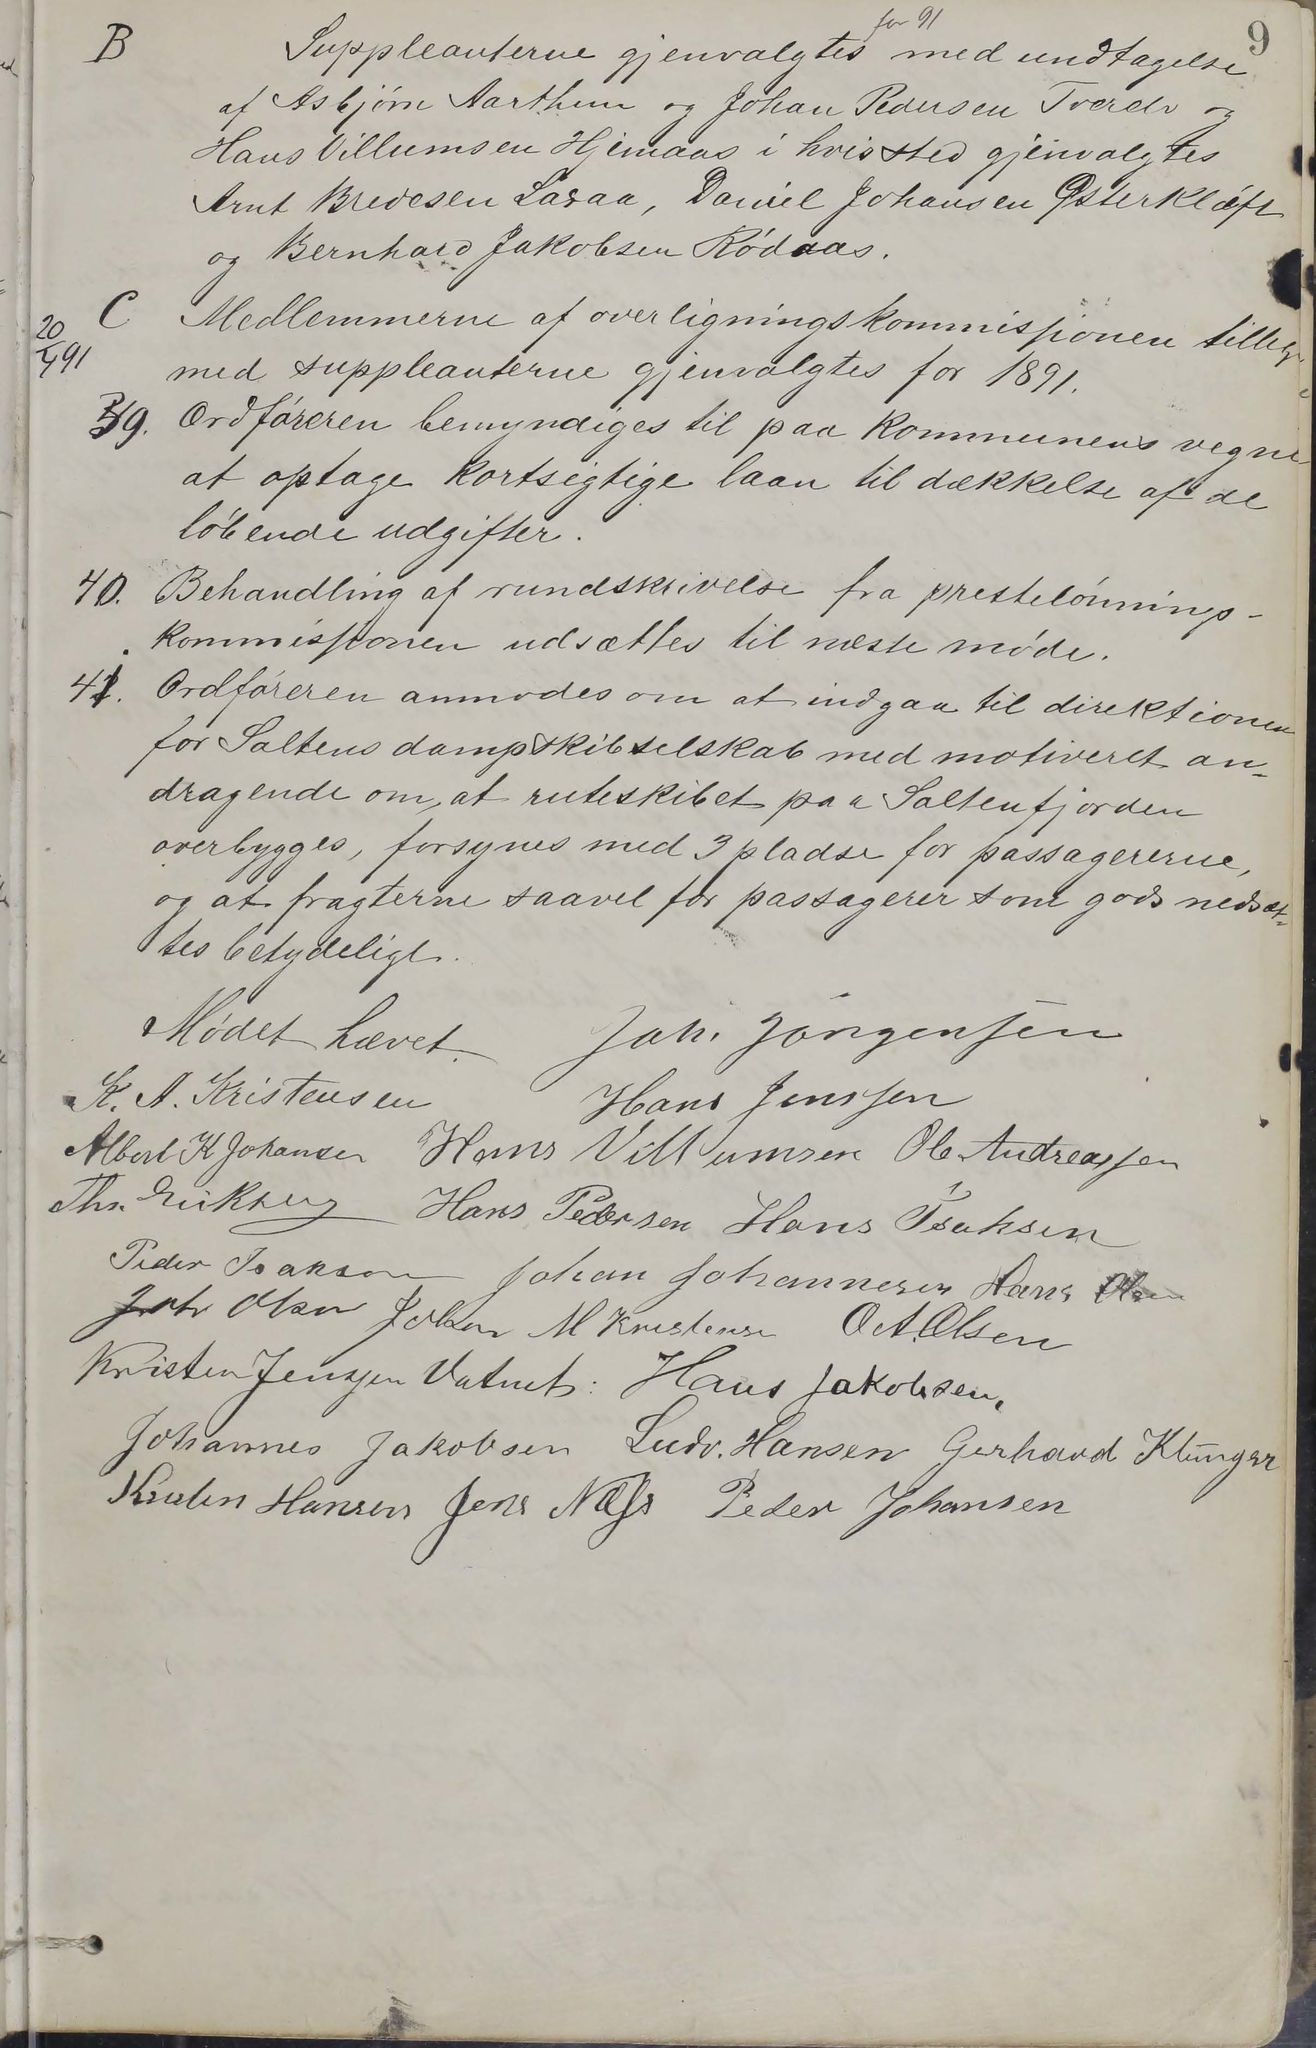 9
for 91
B Suppleanterne gjenvalgtes med undtagelse
af Asbjørn Aarthun og Johan Pedersen Tverdv og
Hans Villumsen Hjemaas i hvis sted gjenvalgtes
Arnt Bredesen Laraa, Daniel Johansen Østerkløft
og Bernhard Jakobsen Rödaas.
C Medlemmerne af overligningskommissjonen tillige
20/4 91 med suppleanterne gjenvalgtes for 1891.
39. Ordföreren bemyndiges til paa kommunens vegne
at optage kortsigtige laan til dækkelse af de
löbende udgifter.
40. Behandling af rundskrivelse fra prestelönnings-
kommissjonen udsættes til næste möde.
41. Ordföreren anmodes om at indgaa til direktionen
for Saltens dampskibselskab med motiveret an-
dragende om, at ruteskibet paa Saltenfjorden
overbygges, forsynes med 3 pladse for passagererne,
og at fragterne saavel for passagerer som gods nedsæt-
tes betydeligt.
Mödet hævet. Joh. Jörgensen
K. A. Kristensen Hans Jenssen
Albert K Johansen Hans Villumsen Ole Andreassen
Ths. Hans Pedersen Hans Isaksen
Peder Isaksen Johan Johannesen Hans Olsen
Olsen Johan M Kristensen O A. Olsen
Kristen Jensen Vatnet: Hans Jakobsen.
Johannes Jakobsen Ludv. Hansen Gerhard Klunger
Hansen Jens Næss Peder Johansen